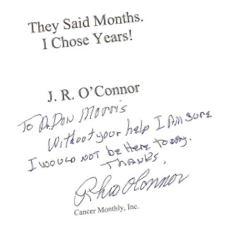 They Said Months.
I Chose Years!
J. R. O'Connor
To Dr. Don Morris
Without your help I Am sure
I would not be here today.
Thanks,
Rhio O'Connor
Cancer Monthly, Inc.